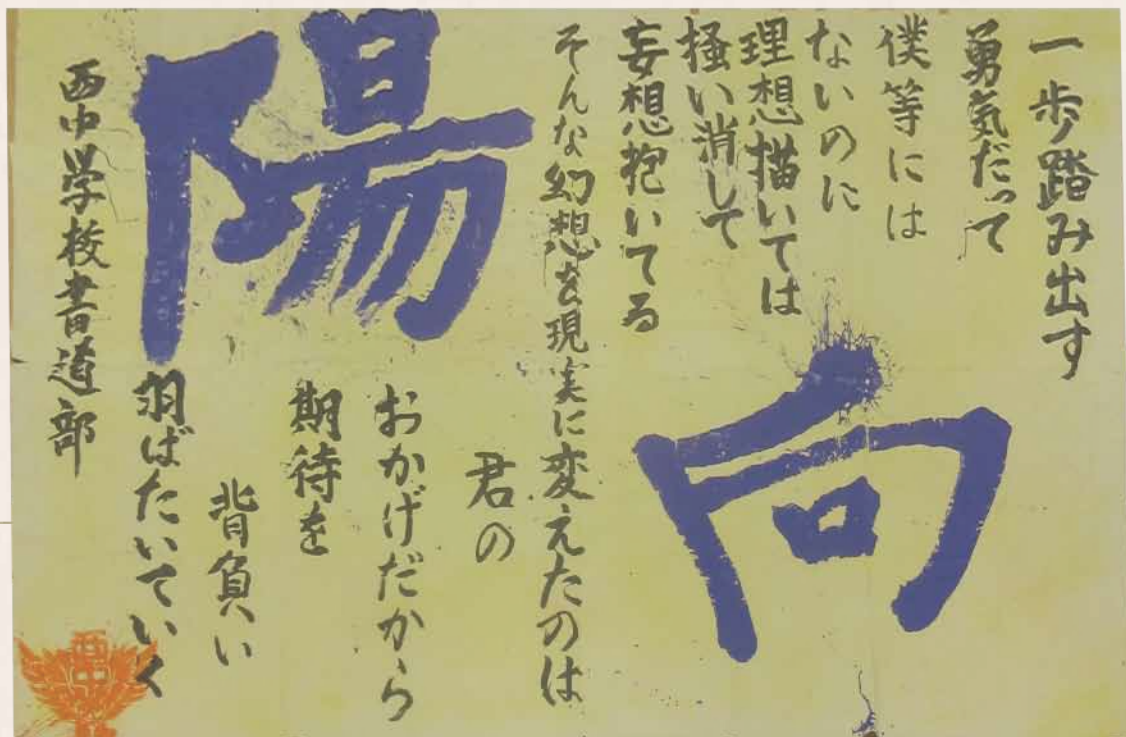 一歩踏み出す
勇気だって
僕等には
ないのに
理想描いては
掻い消して
妄想抱いてる
向
そんな幻想を現実に変えたのは
君の
おかげだから
期待を
背負い
羽ばたいていく
陽
西中学校書道部
西中